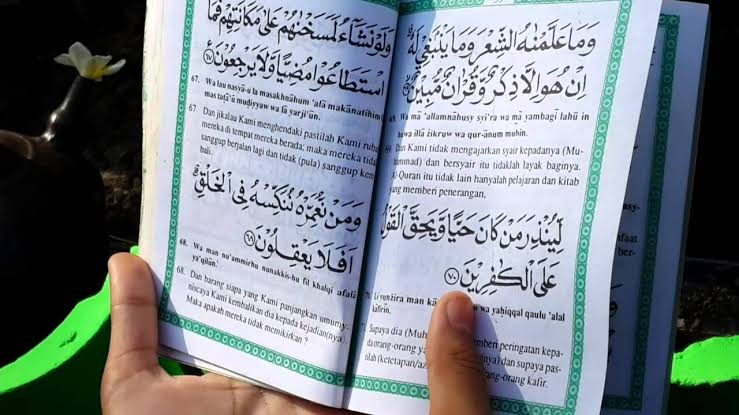 وَلَوْ نَشَاۤءُ لَمَسَخْنٰهُمْ عَلٰى مَكَانَتِهِمْ فَمَا
اسْتَطَاعُوْا مُضِيًّا وَّلَا يَرْجِعُوْنَ ۝٦٧
67. Wa lau nasyā-u la masakhnāhum 'alā makānatihim
mas taṭā'ū muḍiyyaw wa lā yarji'ūn.
67 Dan jikalau Kami menghendaki pastilah Kami rubah
mereka di tempat mereka berada; maka mereka tidak
sanggup berjalan lagi dan tidak (pula) sanggup kem
bali.
وَمَنْ نُّعَمِّرْهُ نُنَكِّسْهُ فِى الْخَلْقِۗ
اَفَلَا يَعْقِلُوْنَ ۝٦٨
68. Wa man nu'ammirhu nunakkis-hu fil khalqi afalā
ya'qilūn.
68. Dan barang siapa yang Kami panjangkan umurnya
niscaya Kami kembalikan dia kepada kejadian(nya).
Maka apakah mereka tidak memikirkan ?
وَمَا عَلَّمْنٰهُ الشِّعْرَ وَمَا يَنْۢبَغِيْ لَهٗۗ
اِنْ هُوَ اِلَّا ذِكْرٌ وَّقُرْاٰنٌ مُّبِيْنٌ
69. Wa mā 'allamnāhusy syi'ra wa mā yambagī lahū in
huwa illā zikruw wa qur-ānum mubin.
Dan Kami tidak mengajarkan syair kepadanya (Mu-
hammad) dan bersyair itu tidaklah layak baginya.
Al-Quran itu tidak lain hanyalah pelajaran dan kitab
yang memberi penerangan.
لِّيُنْذِرَ مَنْ كَانَ حَيًّا وَّيَحِقَّ الْقَوْلُ
عَلَى الْكٰفِرِيْنَ ۝٧٠
Li yunżira man kā wa yaḥiqqal qaulu 'alal
kāfirīn.
Supaya dia (Muh memberi peringatan kepa-
da orang-orang ya nya) dan supaya pas-
tilah (ketetapan/az orang-orang kafir.